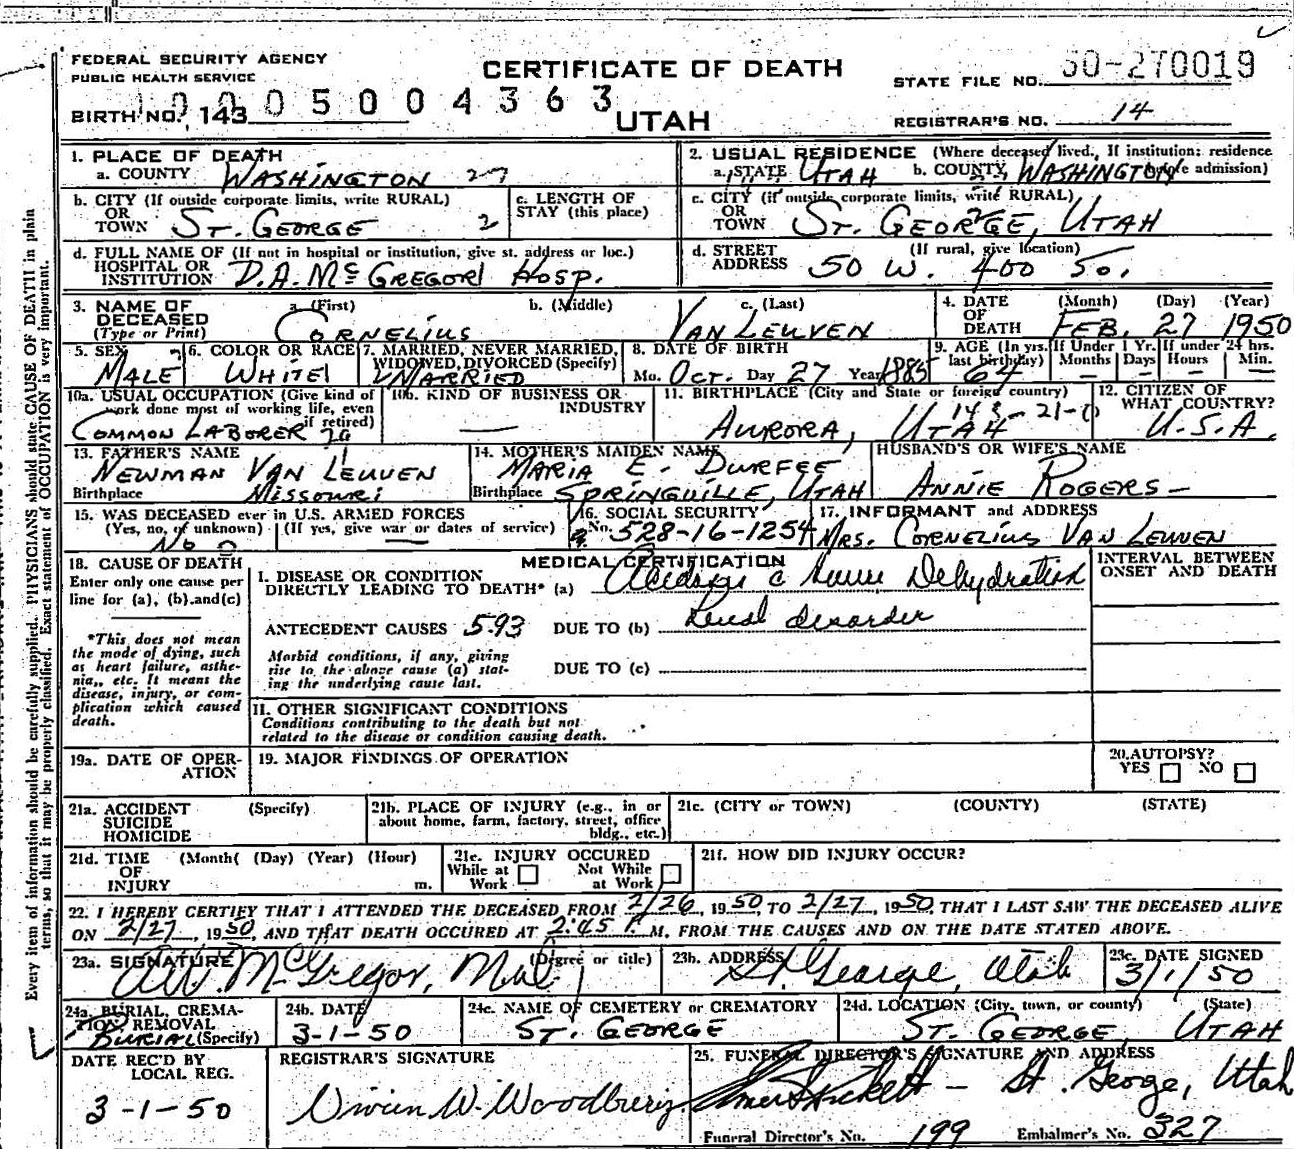 FEDERAL SECURITY AGENCY
PUBLIC HEALTH SERVICE
CERTIFICATE OF DEATH
STATE FILE NO. 50-270019
0005004363
BIRTH NO. 143
UTAH
REGISTRAR'S NO. 14
Every item of information should be carefully supplied. PHYSICIANS should state CAUSE OF DEATH in plain
terms, so that it may be properly classified. Exact statement of OCCUPATION is very important.
1. PLACE OF DEATH
a. COUNTY WASHINGTON 27
2. USUAL RESIDENCE (Where deceased lived. If institution: residence
a. STATE UTAH b. COUNTY WASHINGTON admission)
b. CITY (If outside corporate limits, write RURAL)
OR
TOWN ST. GEORGE 2
c. LENGTH OF
STAY (this place)
c. CITY (if outside corporate limits, write RURAL)
OR
TOWN ST. GEORGE, UTAH
d. FULL NAME OF (If not in hospital or institution, give st. address or loc.)
HOSPITAL OR
INSTITUTION D.A. McGREGOR HOSP.
d. STREET (If rural, give location)
ADDRESS 50 W. 400 SO.
3. NAME OF DECEASED
(Type or Print)
a. (First) CORNELIUS
b. (Middle)
c. (Last) VAN LEUVEN
4. DATE OF DEATH
(Month) (Day) (Year)
FEB. 27 1950
5. SEX
MALE
6. COLOR OR RACE
WHITE
7. MARRIED, NEVER MARRIED,
WIDOWED, DIVORCED (Specify)
MARRIED
8. DATE OF BIRTH
Mo. OCT. Day 27 Year 1885
9. AGE (In yrs. last birthday) 64
If Under 1 Yr. Months — Days —
If under 24 hrs. Hours — Min. —
10a. USUAL OCCUPATION (Give kind of
work done most of working life, even
if retired)
COMMON LABORER
10b. KIND OF BUSINESS OR
INDUSTRY
—
11. BIRTHPLACE (City and State or foreign country)
AURORA, UTAH
12. CITIZEN OF
WHAT COUNTRY?
U.S.A.
13. FATHER'S NAME
NEWMAN VAN LEUVEN
Birthplace MISSOURI
14. MOTHER'S MAIDEN NAME
MARIA E. DURFEE
Birthplace SPRINGVILLE, UTAH
HUSBAND'S OR WIFE'S NAME
ANNIE ROGERS —
15. WAS DECEASED ever in U.S. ARMED FORCES
(Yes, no, of unknown) (If yes, give war or dates of service)
NO —
16. SOCIAL SECURITY
No. 528-16-1254
17. INFORMANT and ADDRESS
MRS. CORNELIUS VAN LEUVEN
18. CAUSE OF DEATH
Enter only one cause per
line for (a), (b).and(c)
*This does not mean
the mode of dying, such
as heart failure, asthe-
nia,, etc. It means the
disease, injury, or com-
plication which caused
death.
MEDICAL CERTIFICATION
I. DISEASE OR CONDITION
DIRECTLY LEADING TO DEATH* (a) Dehydration
ANTECEDENT CAUSES 593 DUE TO (b) Renal disorder
Morbid conditions, if any, giving
rise to the above cause (a) stat-
ing the underlying cause last.
DUE TO (c)
II. OTHER SIGNIFICANT CONDITIONS
Conditions contributing to the death but not
related to the disease or condition causing death.
INTERVAL BETWEEN
ONSET AND DEATH
19a. DATE OF OPER-
ATION
19. MAJOR FINDINGS OF OPERATION
20. AUTOPSY?
YES NO
21a. ACCIDENT (Specify)
SUICIDE
HOMICIDE
21b. PLACE OF INJURY (e.g., in or
about home, farm, factory, street, office
bldg., etc.)
21c. (CITY or TOWN) (COUNTY) (STATE)
21d. TIME (Month( (Day) (Year) (Hour)
OF
INJURY m.
21e. INJURY OCCURED
While at Work Not While at Work
21f. HOW DID INJURY OCCUR?
22. I HEREBY CERTIFY THAT I ATTENDED THE DECEASED FROM 2/26, 1950, TO 2/27, 1950, THAT I LAST SAW THE DECEASED ALIVE
ON 2/27, 1950, AND THAT DEATH OCCURED AT 2:45 P.M., FROM THE CAUSES AND ON THE DATE STATED ABOVE.
23a. SIGNATURE (Degree or title)
McGregor, M.D.
23b. ADDRESS
St. George, Utah
23c. DATE SIGNED
3/1/50
24a. BURIAL, CREMA-
TION, REMOVAL
(Specify) BURIAL
24b. DATE
3-1-50
24c. NAME OF CEMETERY or CREMATORY
ST. GEORGE
24d. LOCATION (City, town, or county) (State)
ST. GEORGE, UTAH
DATE REC'D BY
LOCAL REG.
3-1-50
REGISTRAR'S SIGNATURE
Vivian W. Woodbury
25. FUNERAL DIRECTOR'S SIGNATURE AND ADDRESS
— St. George, Utah
Funeral Director's No. 199 Embalmer's No. 327